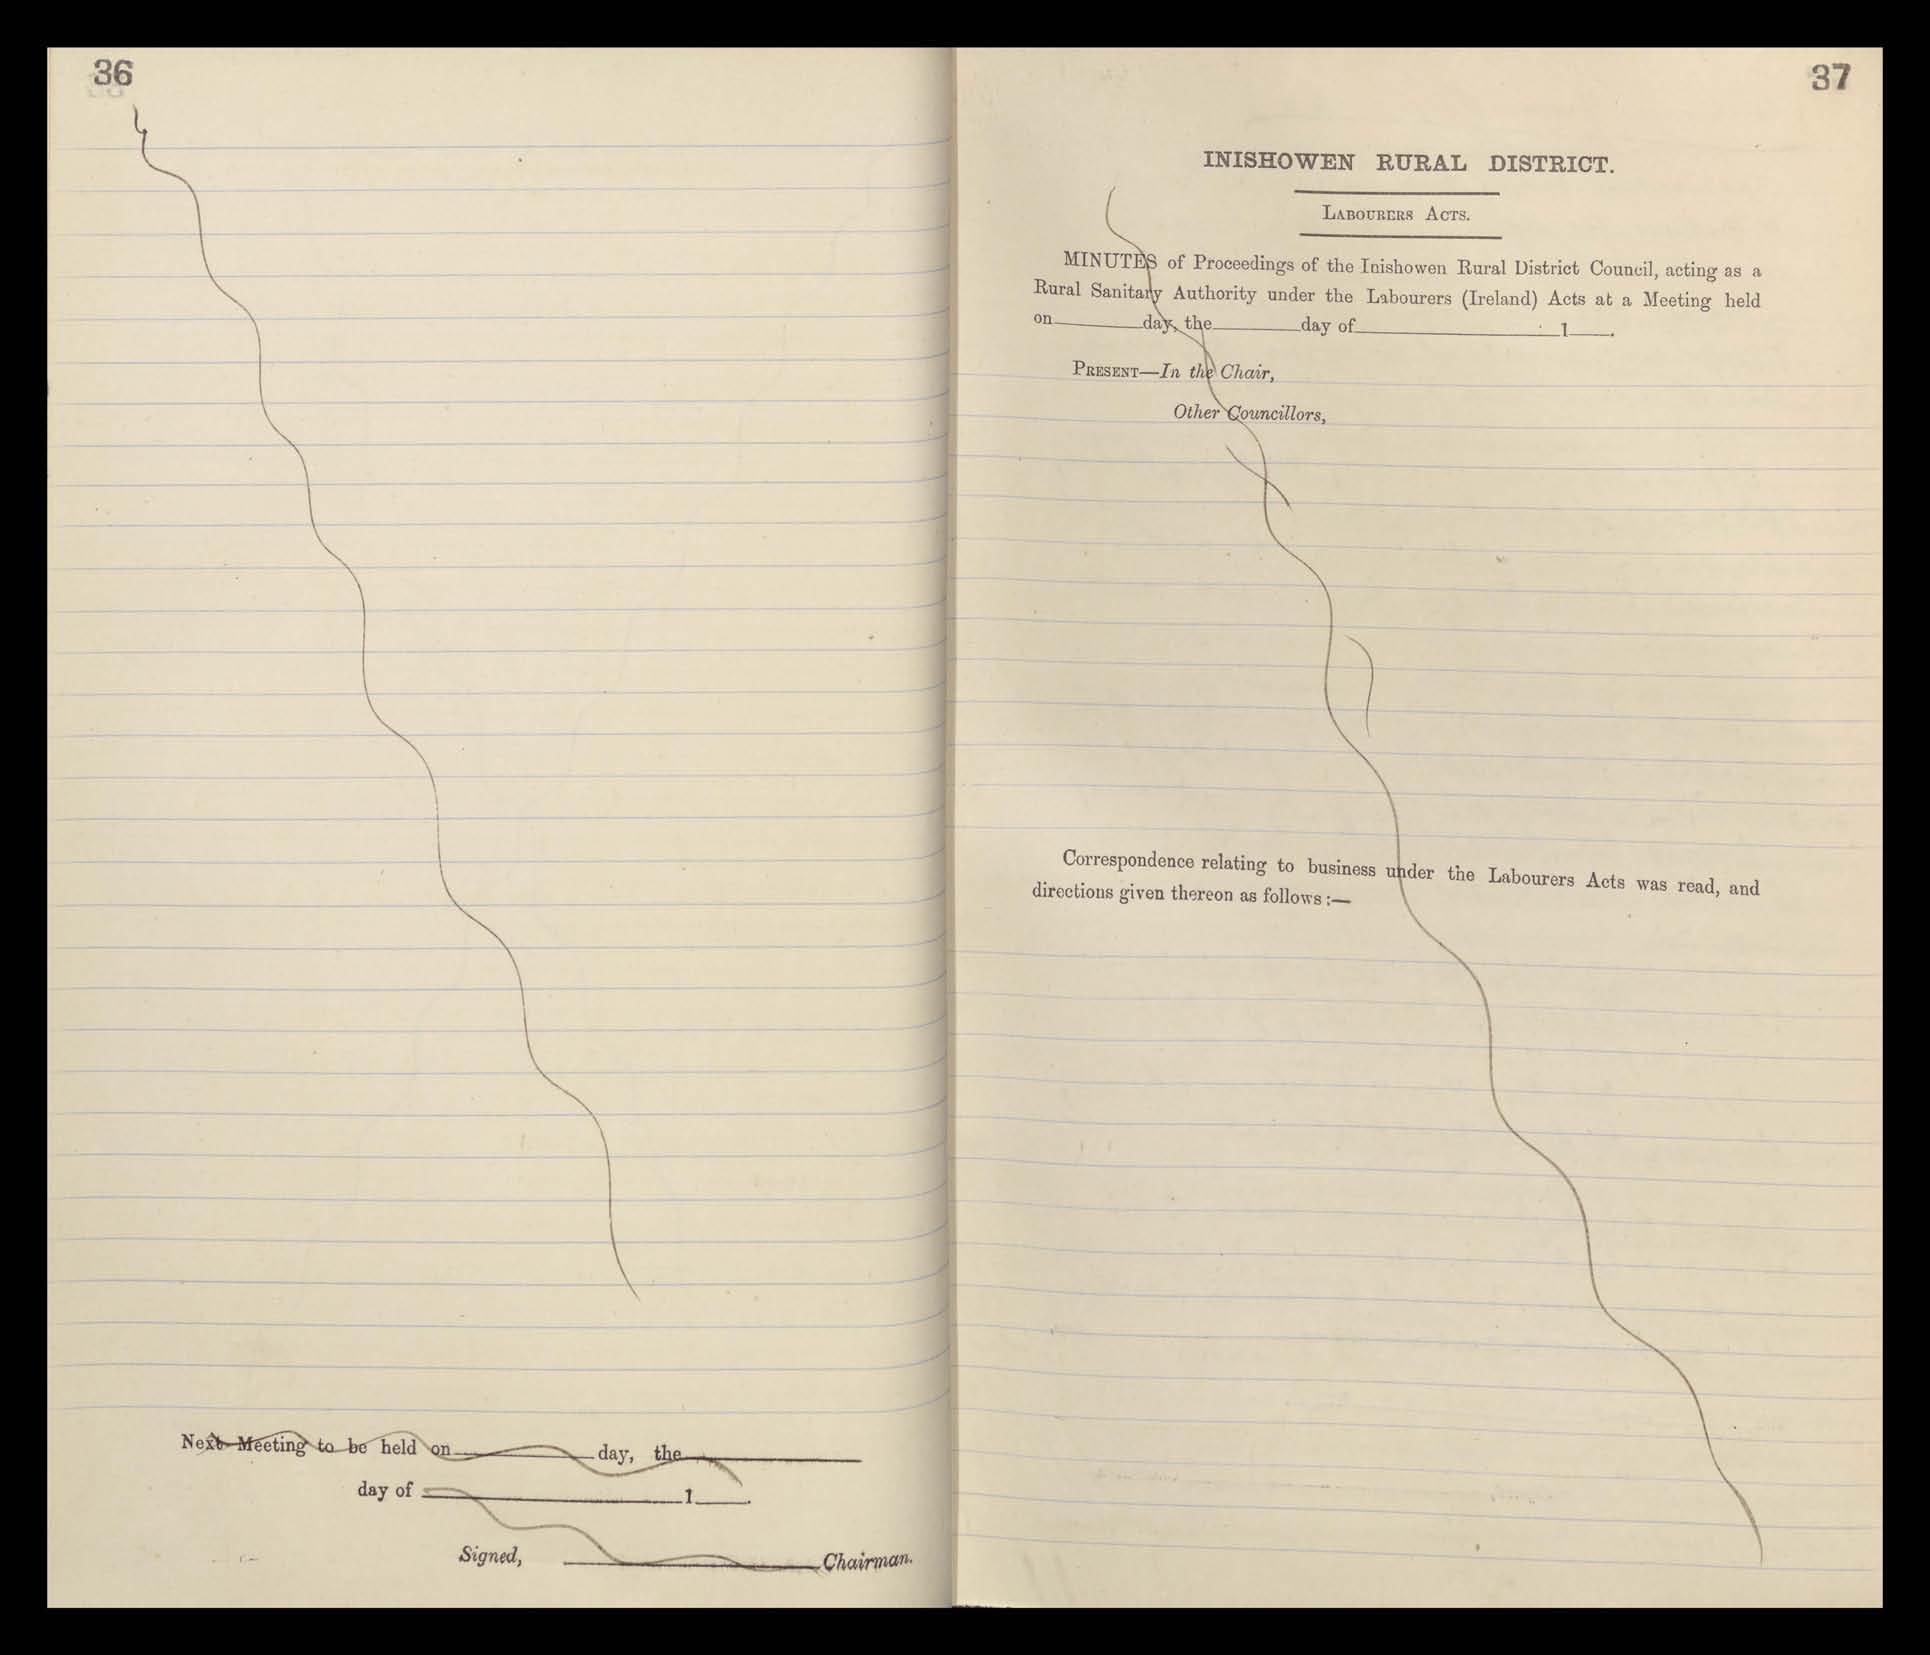 36
Next Meeting to be held on day, the
day of 1 .
Signed, Chairman.
37
INISHOWEN RURAL DISTRICT.
LABOURERS ACTS.
MINUTES of Proceedings of the Inishowen Rural District Council, acting as a
Rural Sanitary Authority under the Labourers (Ireland) Acts at a Meeting held
on day, the day of 1 .
PRESENT—In the Chair,
Other Councillors,
Correspondence relating to business under the Labourers Acts was read, and
directions given thereon as follows:—